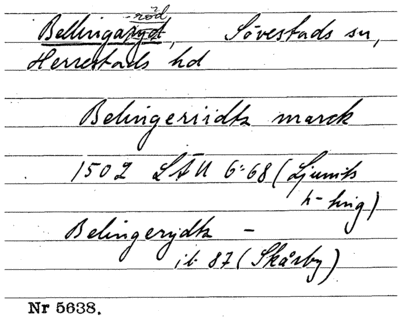 röd
Bellingaryd, Sövestads sn,
Herrestads hd
Belingeriidtz marck
1502 LÄU 6:68 (Ljunits
h-ting)
Belingerydtz -
ib 87 (Skårby)
Nr 5638.